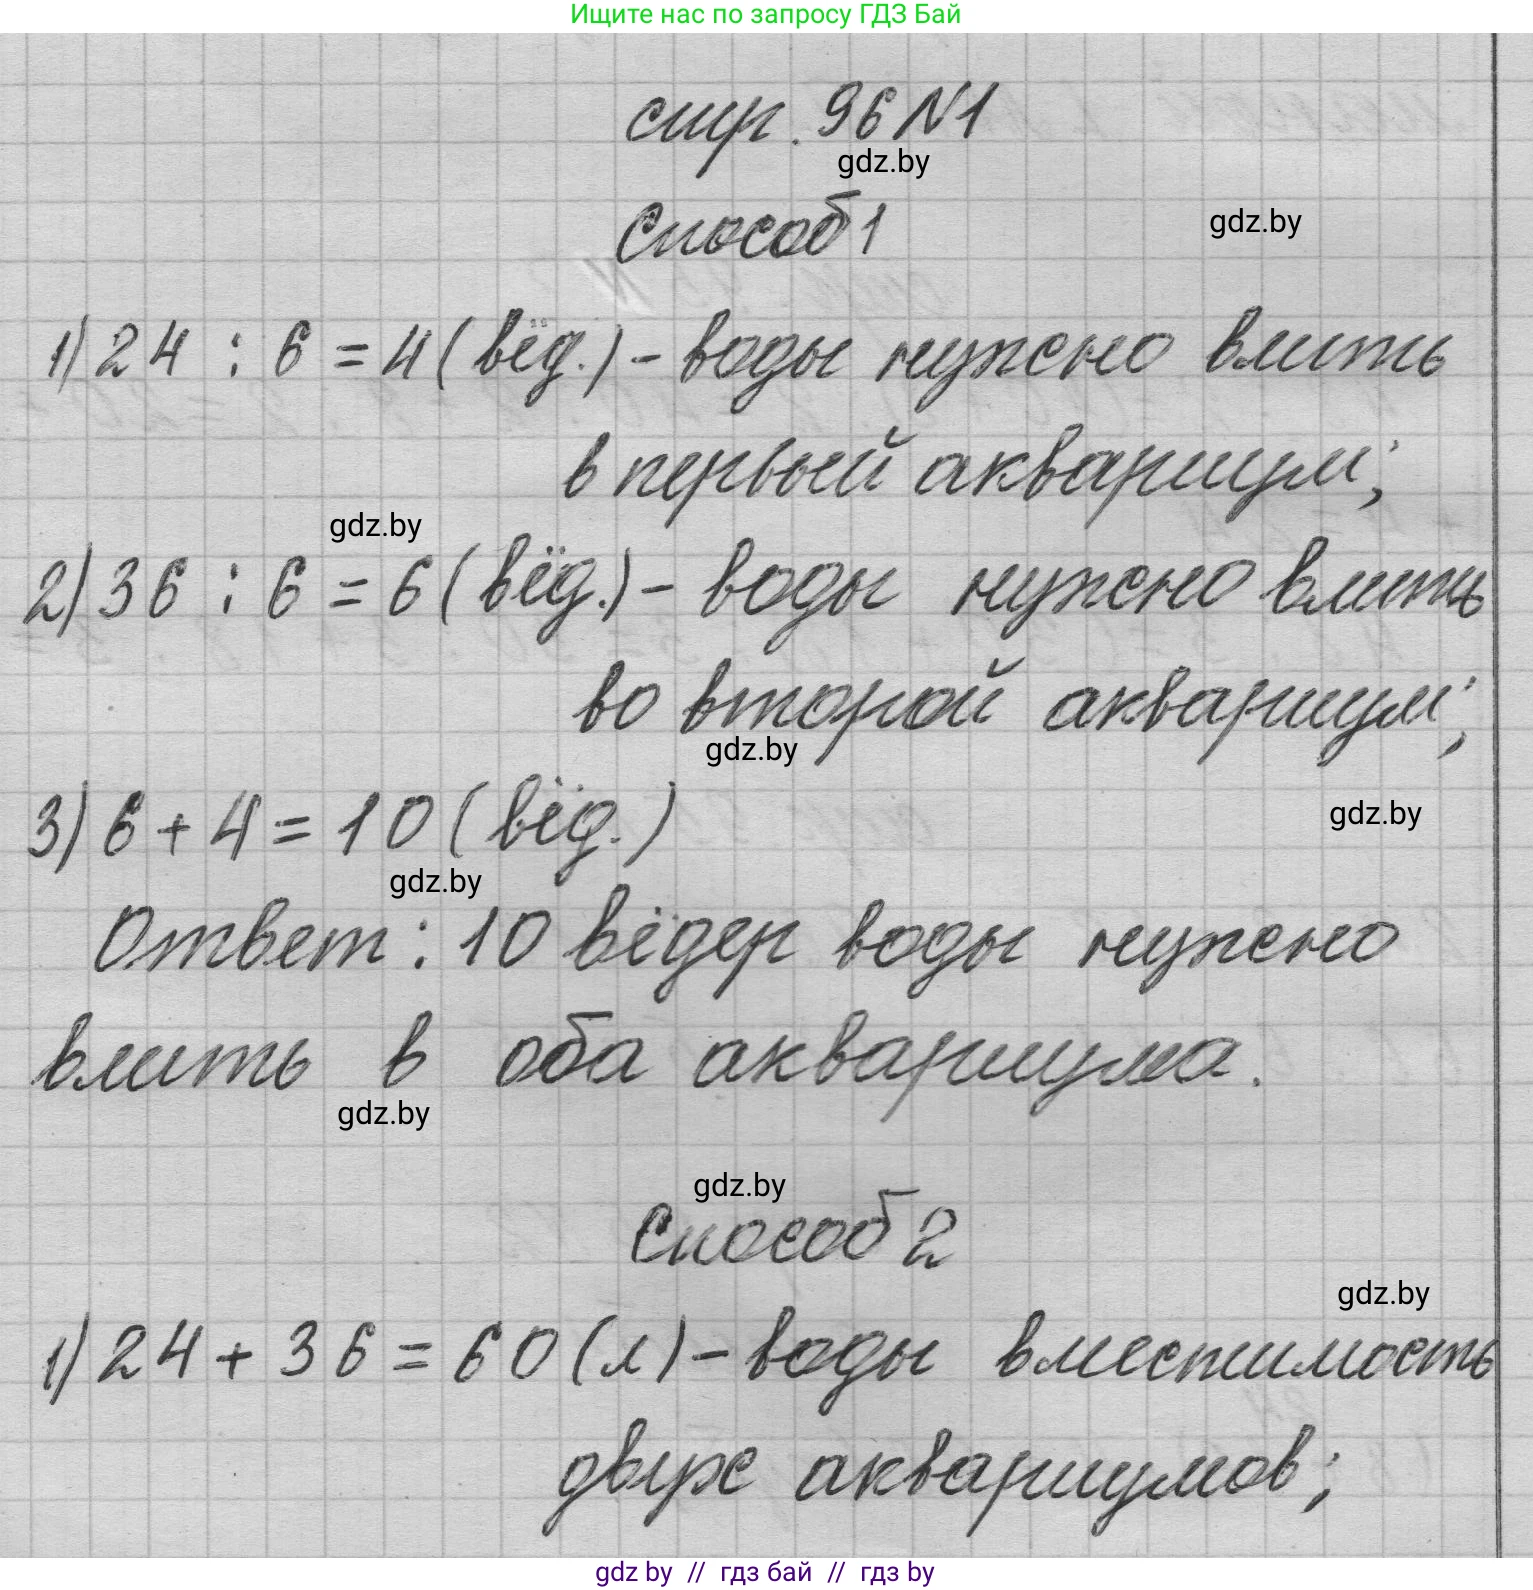 Ищите нас по запросу ГДЗ Бай
стр. 96 N1
gdz.by
Способ 1
gdz.by
1) 24 : 6 = 4 (вёд.) - воды нужно влить
в первый аквариум;
gdz.by
2) 36 : 6 = 6 (вёд.) - воды нужно влить
во второй аквариум;
gdz.by
3) 6 + 4 = 10 (вёд.)
gdz.by
gdz.by
Ответ: 10 вёдер воды нужно
влить в оба аквариума.
gdz.by
gdz.by
Способ 2
gdz.by
1) 24 + 36 = 60 (л) - воды вместимость
двух аквариумов;
gdz by // гдз бай // гдз by